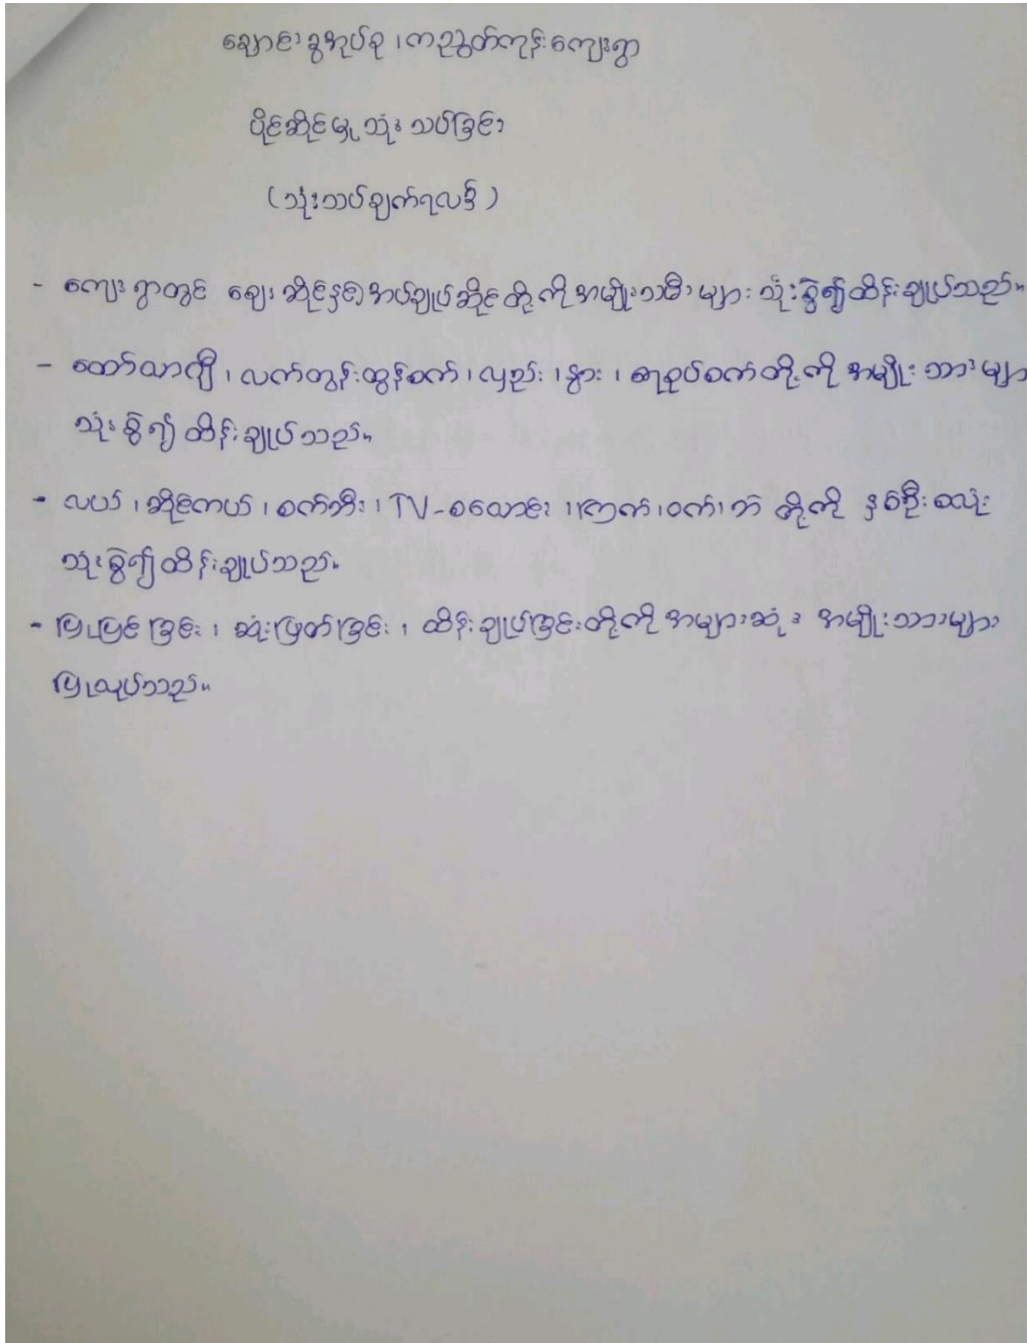 ချောင်းခွအုပ်စု ၊ ကညွတ်ကုန်းကျေးရွာ
ပိုင်ဆိုင်မှု သုံးသပ်ခြင်း
(သုံးသပ်ချက်ရလဒ်)
- ကျေးရွာတွင် ဈေးဆိုင်နှင့် အပ်ချုပ်ဆိုင်တို့ကို အမျိုးသမီးများ သုံးစွဲ၍ ထိန်းချုပ်သည်။
- ထော်လာဂျီ ၊ လက်တွန်းထွန်စက် ၊ လှည်း ၊ နွား ၊ စာရုပ်စက်တို့ကို အမျိုးသားများ
သုံးစွဲ၍ ထိန်းချုပ်သည်။
- လယ် ၊ ဆိုင်ကယ် ၊ စက်ဘီး ၊ TV-စလောင်း ၊ ကြက် ၊ ဝက် ၊ ဘဲ တို့ကို နှစ်ဦးစလုံး
သုံးစွဲ၍ ထိန်းချုပ်သည်။
- ပြုပြင်ခြင်း ၊ ဆုံးဖြတ်ခြင်း ၊ ထိန်းချုပ်ခြင်းတို့ကို အများဆုံး အမျိုးသားများ
ပြုလုပ်သည်။